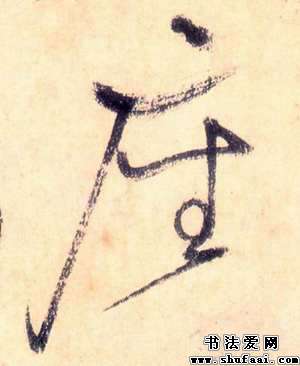 座
书法爱网
www.shufaai.com